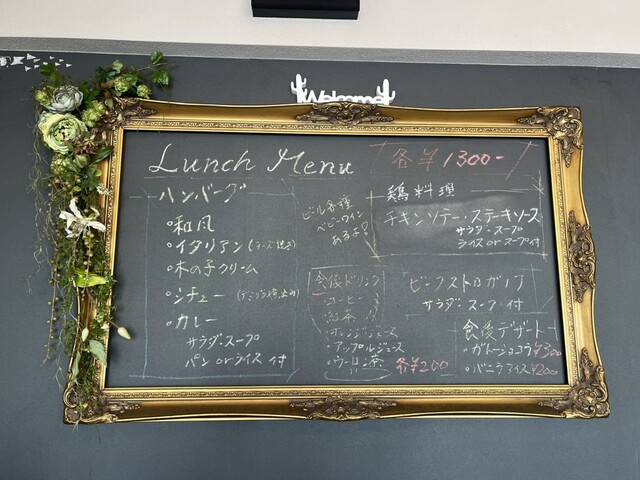 Welcome
Lunch Menu
各¥1300-
ハンバーグ
・和風
・イタリアン(チーズ焼き)
・木の子クリーム
・シチュー
・カレー
サラダ・スープ
パン orライス 付
ビール各種
ベビーワイン
あるよ!
鶏料理
チキンソテー・ステーキソース
サラダ・スープ
ライス or スープ付
ビーフストロガノフ
サラダ・スープ 付
食後ドリンク
・コーヒー
・紅茶
・オレンジジュース
・アップルジュース
・ウーロン茶
各¥200
食後デザート
・ガトーショコラ¥300
・バニラアイス¥200